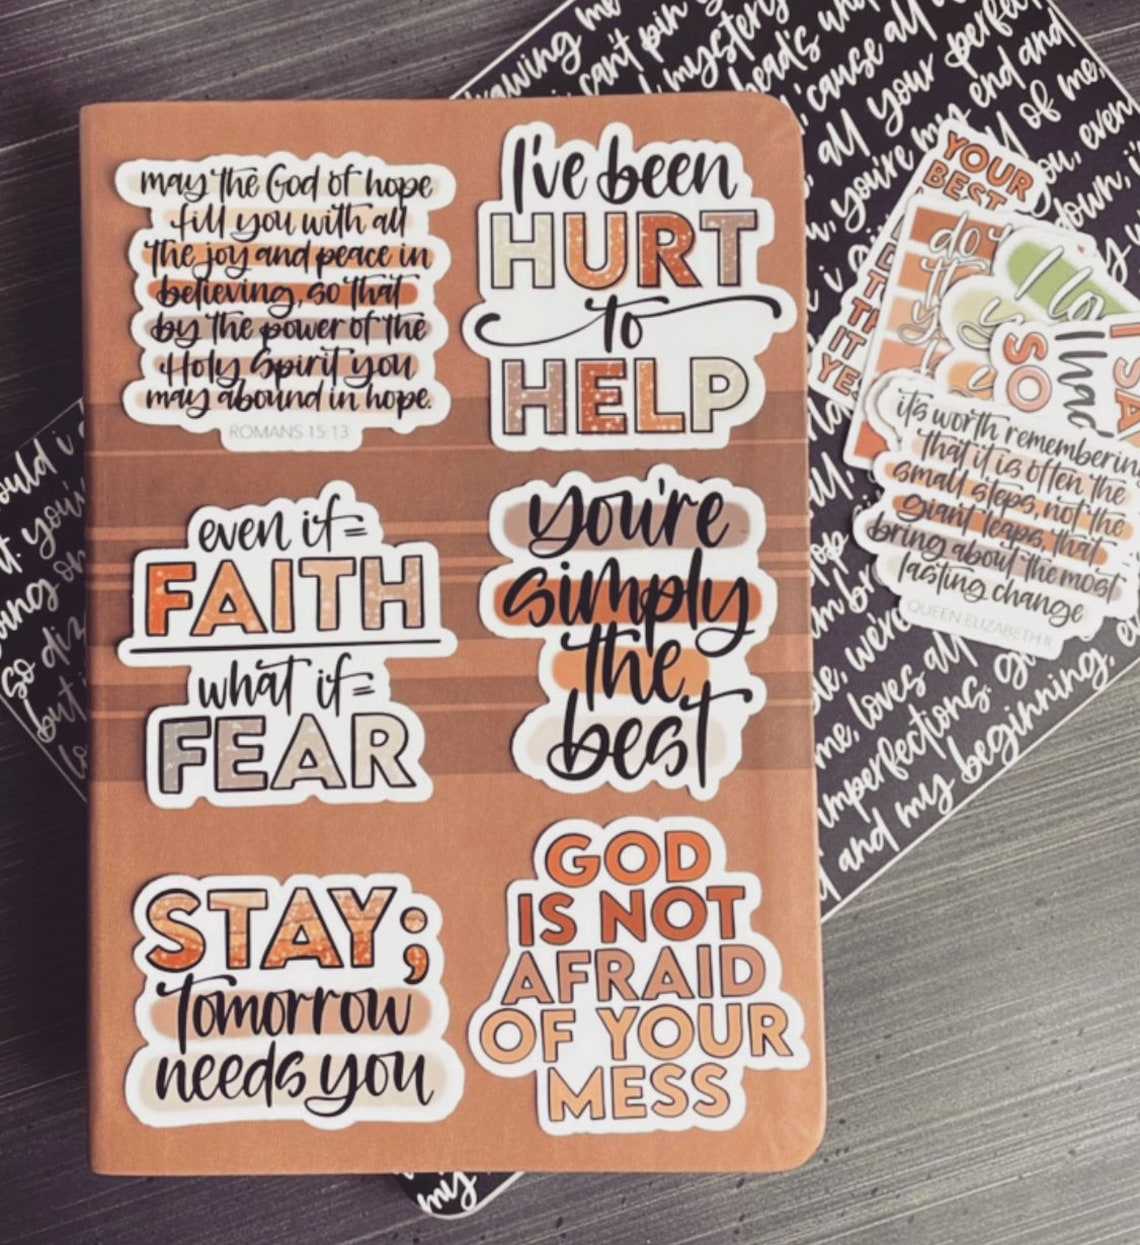 may the God of hope
fill you with all
the joy and peace in
believing, so that
by the power of the
Holy Spirit you
may abound in hope.
ROMANS 15:13
I've been
HURT
to
HELP
even if=
FAITH
what if=
FEAR
you're
simply
the
best
STAY;
tomorrow
needs you
GOD
IS NOT
AFRAID
OF YOUR
MESS
YOUR
BEST
do
SO
I had
it's worth remembering
that it is often the
small steps, not the
giant leaps, that
bring about the most
lasting change
QUEEN ELIZABETH II
drawing me
can't pin
mystery
head's
'cause all
all your perfect
you're my end and
of me,
you, even
down, i'
me, loves all
imperfections.
and my beginning,
could i
you're
so diz
but
my